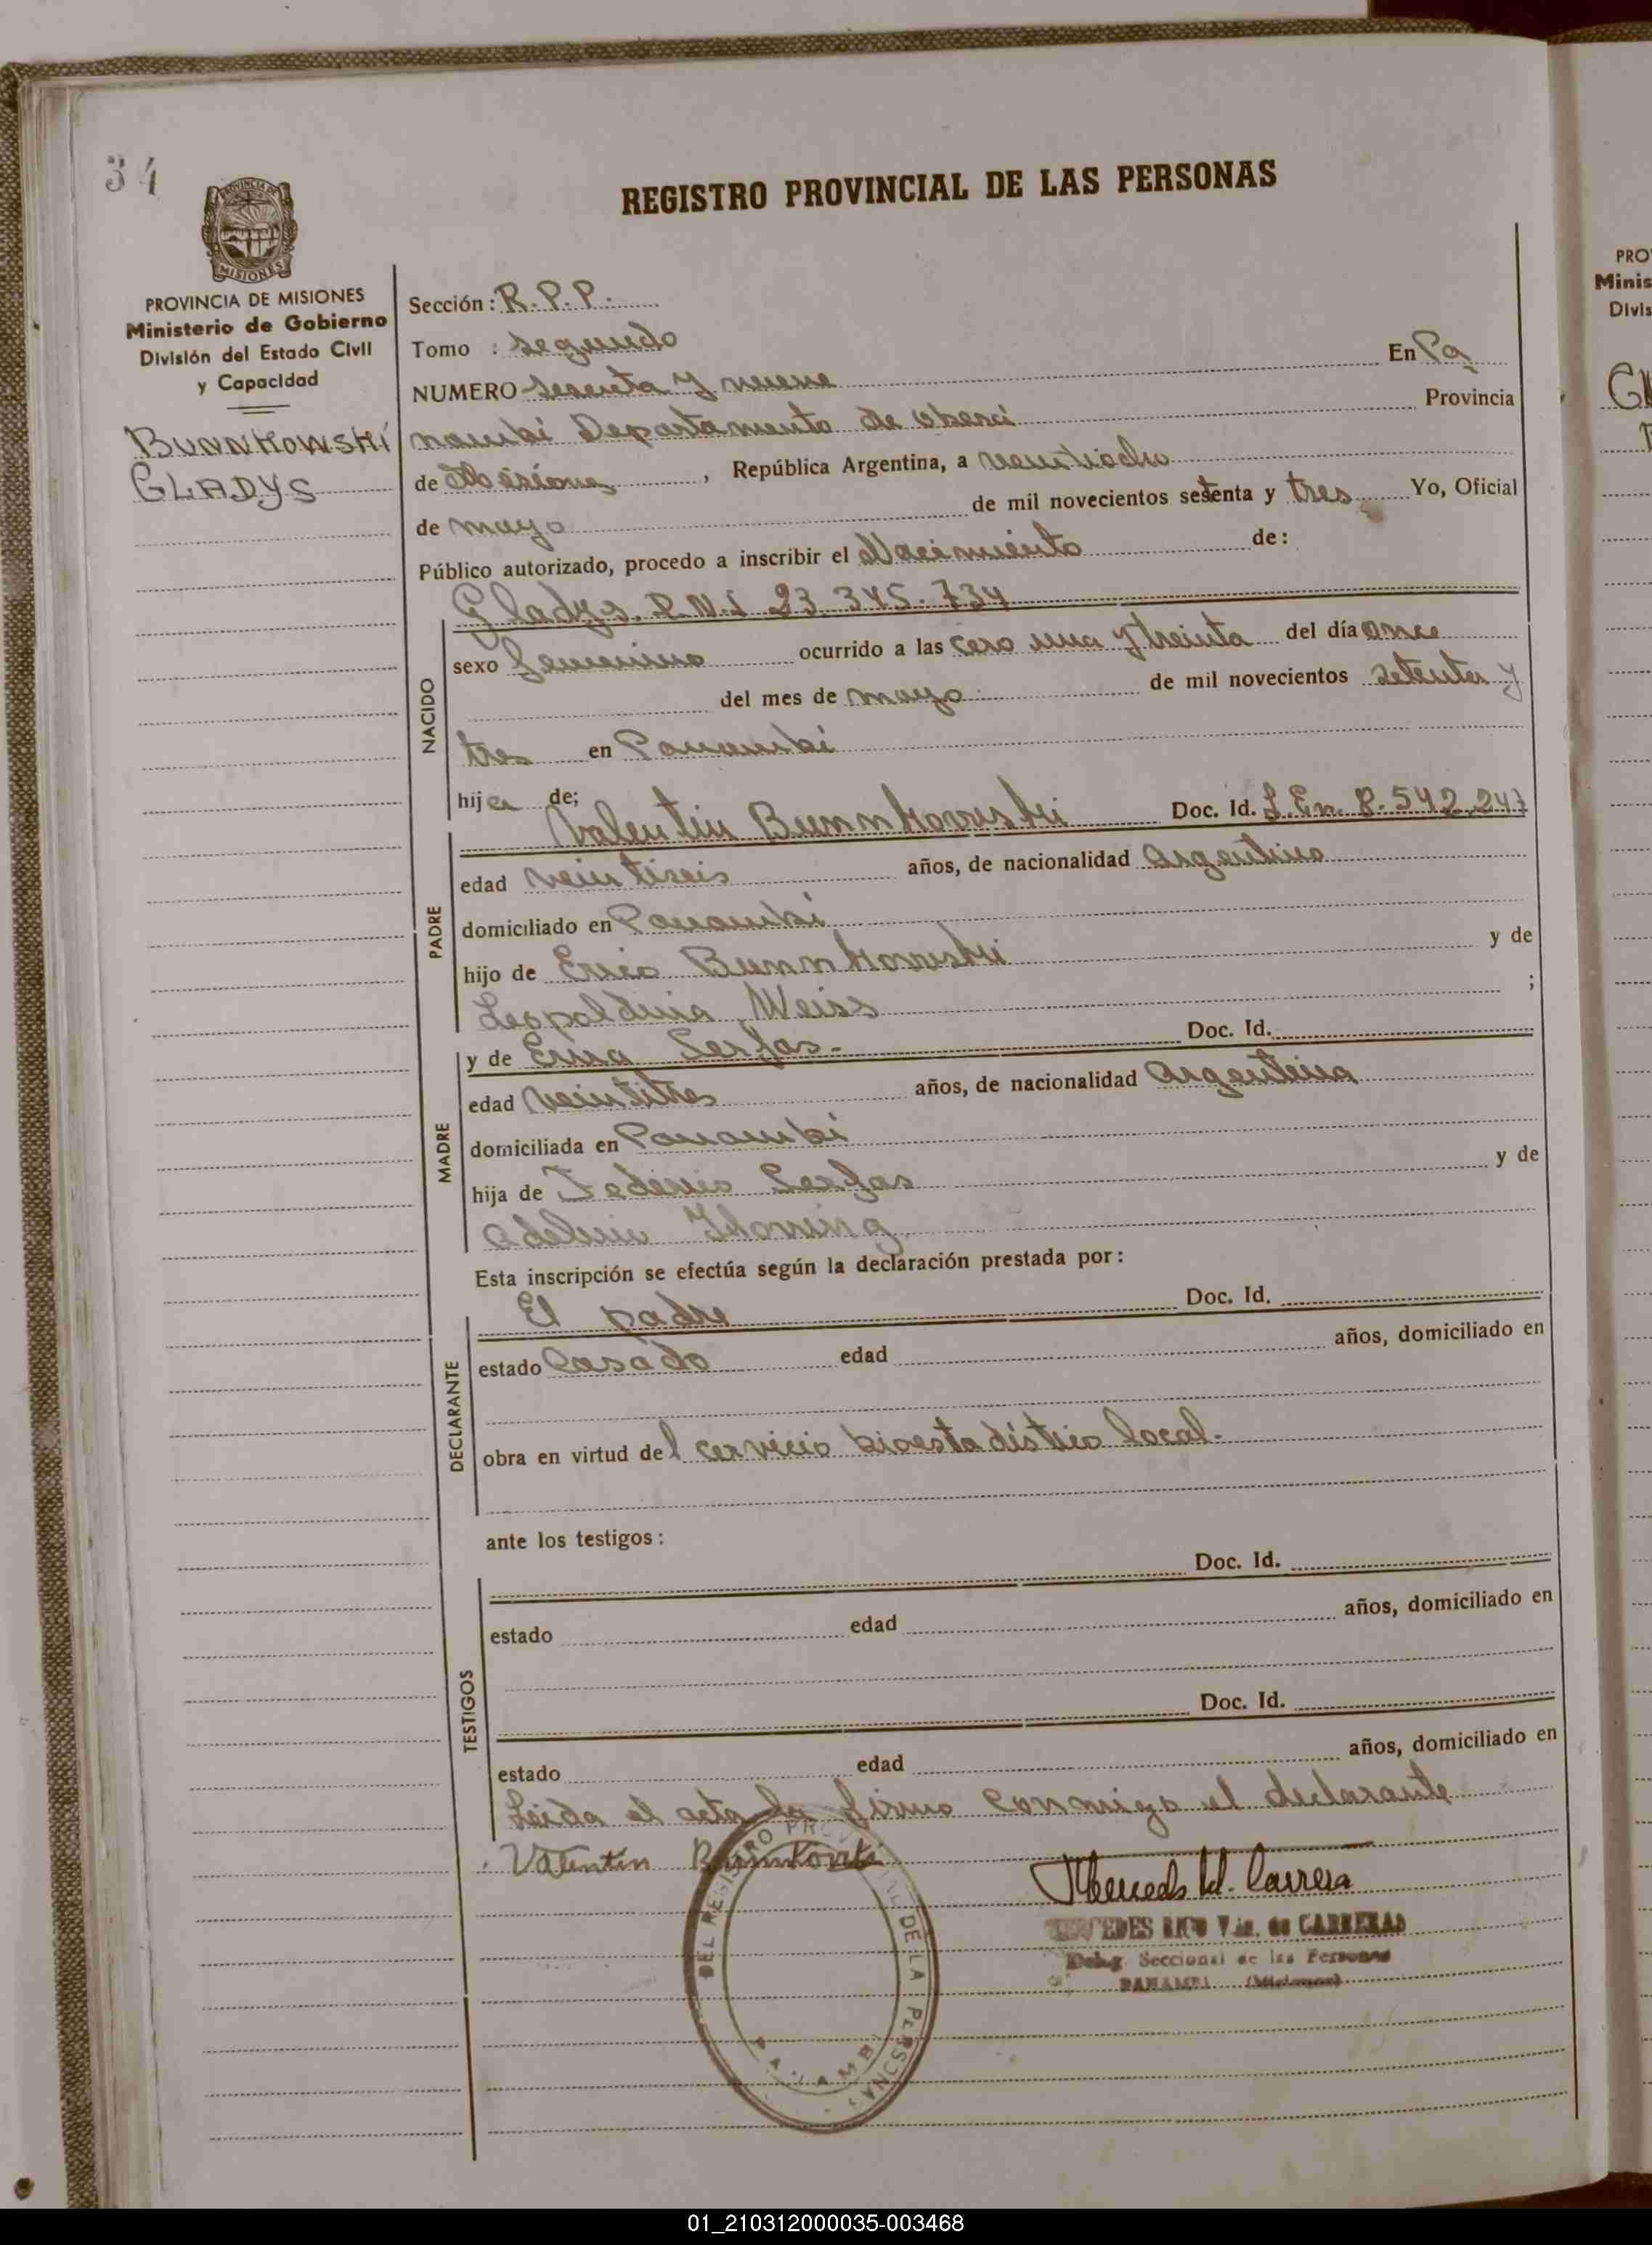 34
REGISTRO PROVINCIAL DE LAS PERSONAS
PROVINCIA DE
MISIONES
PROVINCIA DE MISIONES
Ministerio de Gobierno
División del Estado Civil
y Capacidad
BUNNKOWSKI
GLADYS
Sección: R.P.P.
Tomo : segundo
NUMERO sesenta y nueve En Pa
nambi Departamento de Oberá Provincia
de Misiones, República Argentina, a veintiocho
de mayo de mil novecientos setenta y tres Yo, Oficial
Público autorizado, procedo a inscribir el Nacimiento de:
Gladys. D.N.I 23.345.734
NACIDO
sexo femenino ocurrido a las cero una y treinta del día once
del mes de mayo de mil novecientos setenta y
tres en Panambi
hija de;
PADRE
Valentin Bunnkowski Doc. Id. L.En. 8.542.247
edad veintiseis años, de nacionalidad argentino
domiciliado en Panambi
hijo de Erico Bunnkowski y de
Leopoldina Weiss ;
MADRE
y de Erna Serfas.- Doc. Id.
edad veintitres años, de nacionalidad argentina
domiciliada en Panambi
hija de Federico Serfas y de
Esta inscripción se efectúa según la declaración prestada por:
DECLARANTE
El padre Doc. Id.
estado Casado edad años, domiciliado en
obra en virtud del cervicio bioestadístico local.-
ante los testigos:
TESTIGOS
Doc. Id.
estado edad años, domiciliado en
Doc. Id.
estado edad años, domiciliado en
Leida el acta la firma conmigo el declarante
Valentin Bunnkowski
MERCEDES RICO Vda. de CARRERAS
Deleg. Seccional de las Personas
PANAMBI (Misiones)
DEL REGISTRO PROVINCIAL DE LA PERSONAS
PANAMBI
PRO
Minis
Divis
01_210312000035-003468